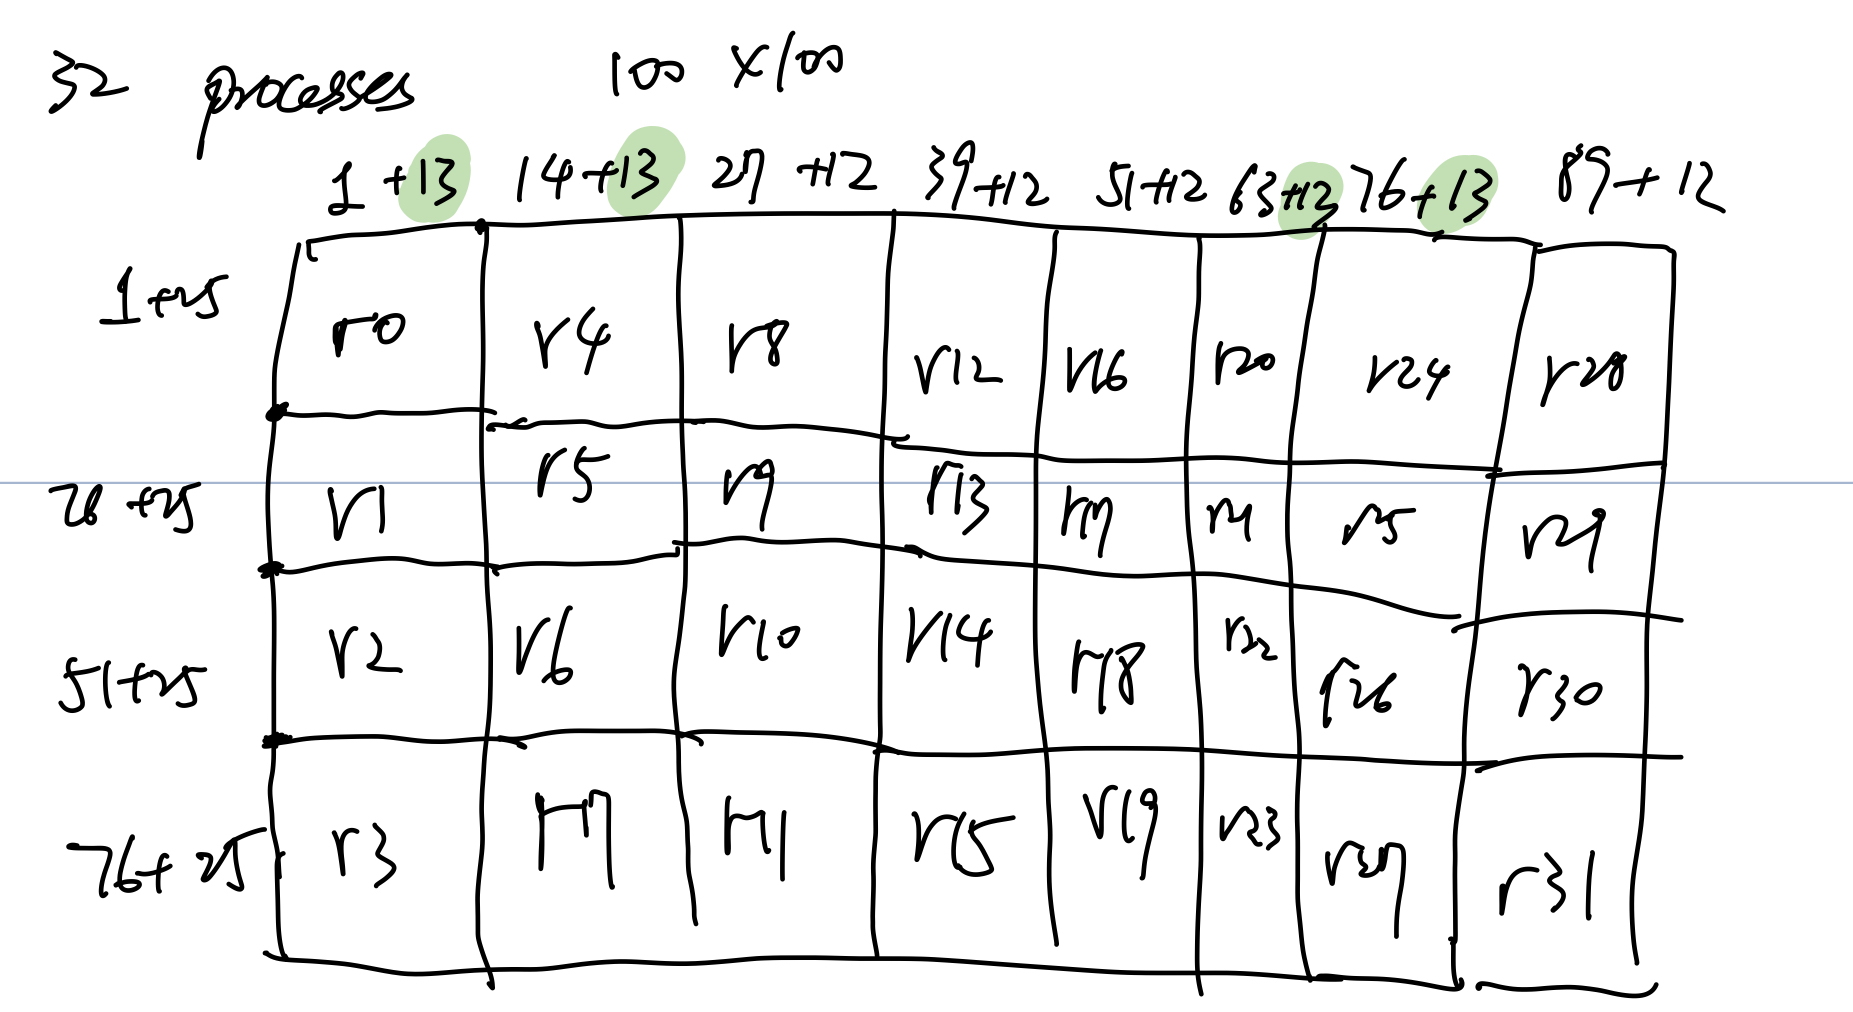 32 processes 100 x100
1 +13 14+13 27 +12 39+12 51+12 63+12 76+13 89+12
1+25 r0 r4 r8 r12 r16 r20 r24 r28
26+25 r1 r5 r9 r13 r17 r21 r25 r29
51+25 r2 r6 r10 r14 r18 r22 r26 r30
76+25 r3 r7 r11 r15 r19 r23 r27 r31